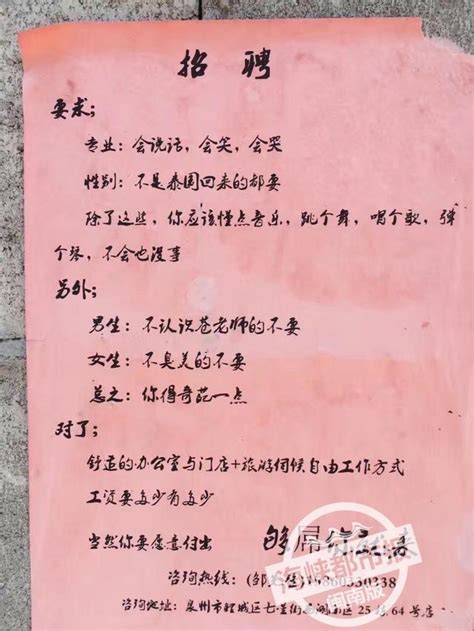 招 聘
要求;
专业: 会说话, 会笑, 会哭
性别: 不是泰国回来的都要
除了这些, 你应该懂点音乐, 跳个舞, 唱个歌, 弹
个琴, 不会也没事
另外;
男生: 不认识苍老师的不要
女生: 不臭美的不要
总之: 你得奇葩一点
对了;
舒适的办公室与门店+旅游伺候自由工作方式
工资要多少有多少
当然你要愿意付出
够屌你就来
咨询热线: (邹
咨询地址: 泉州市鲤城区七 64号店
海峡都市报
闽南版